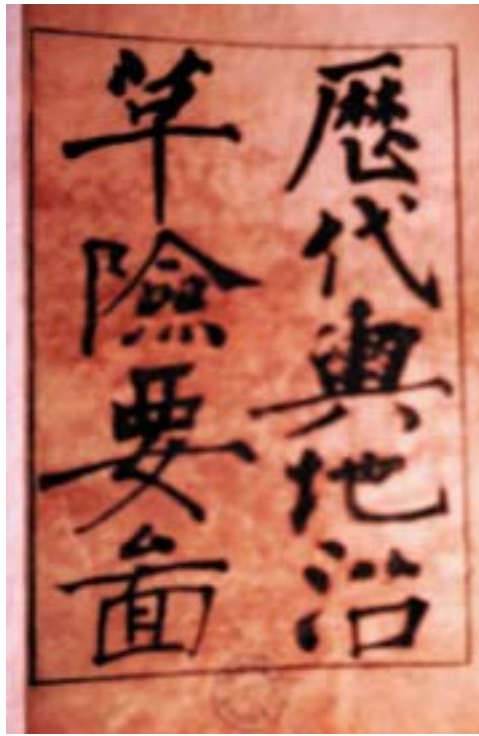 歷代輿地沿
革險要圖